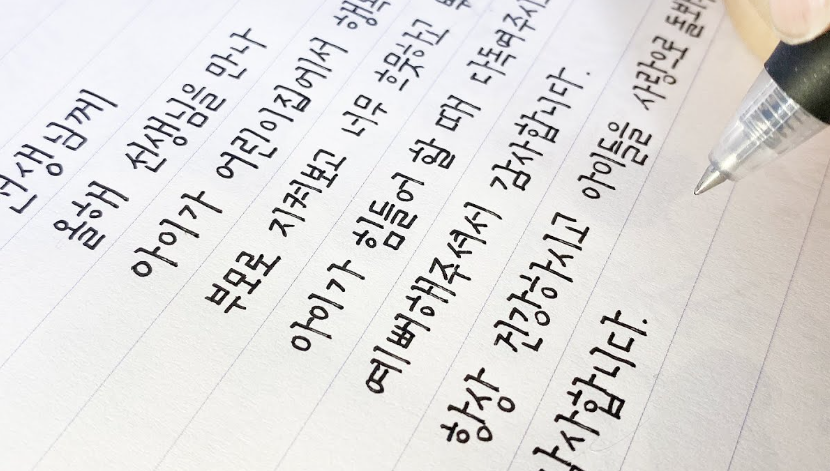 선생님께
올해 선생님을 만나
아이가 어린이집에서
부모로 지켜보고 너무 흐뭇하고
아이가 힘들어 할 때 다독여주시
예뻐해주셔서 감사합니다.
항상 건강하시고 아이들을 사랑으로 돌보
감사합니다.